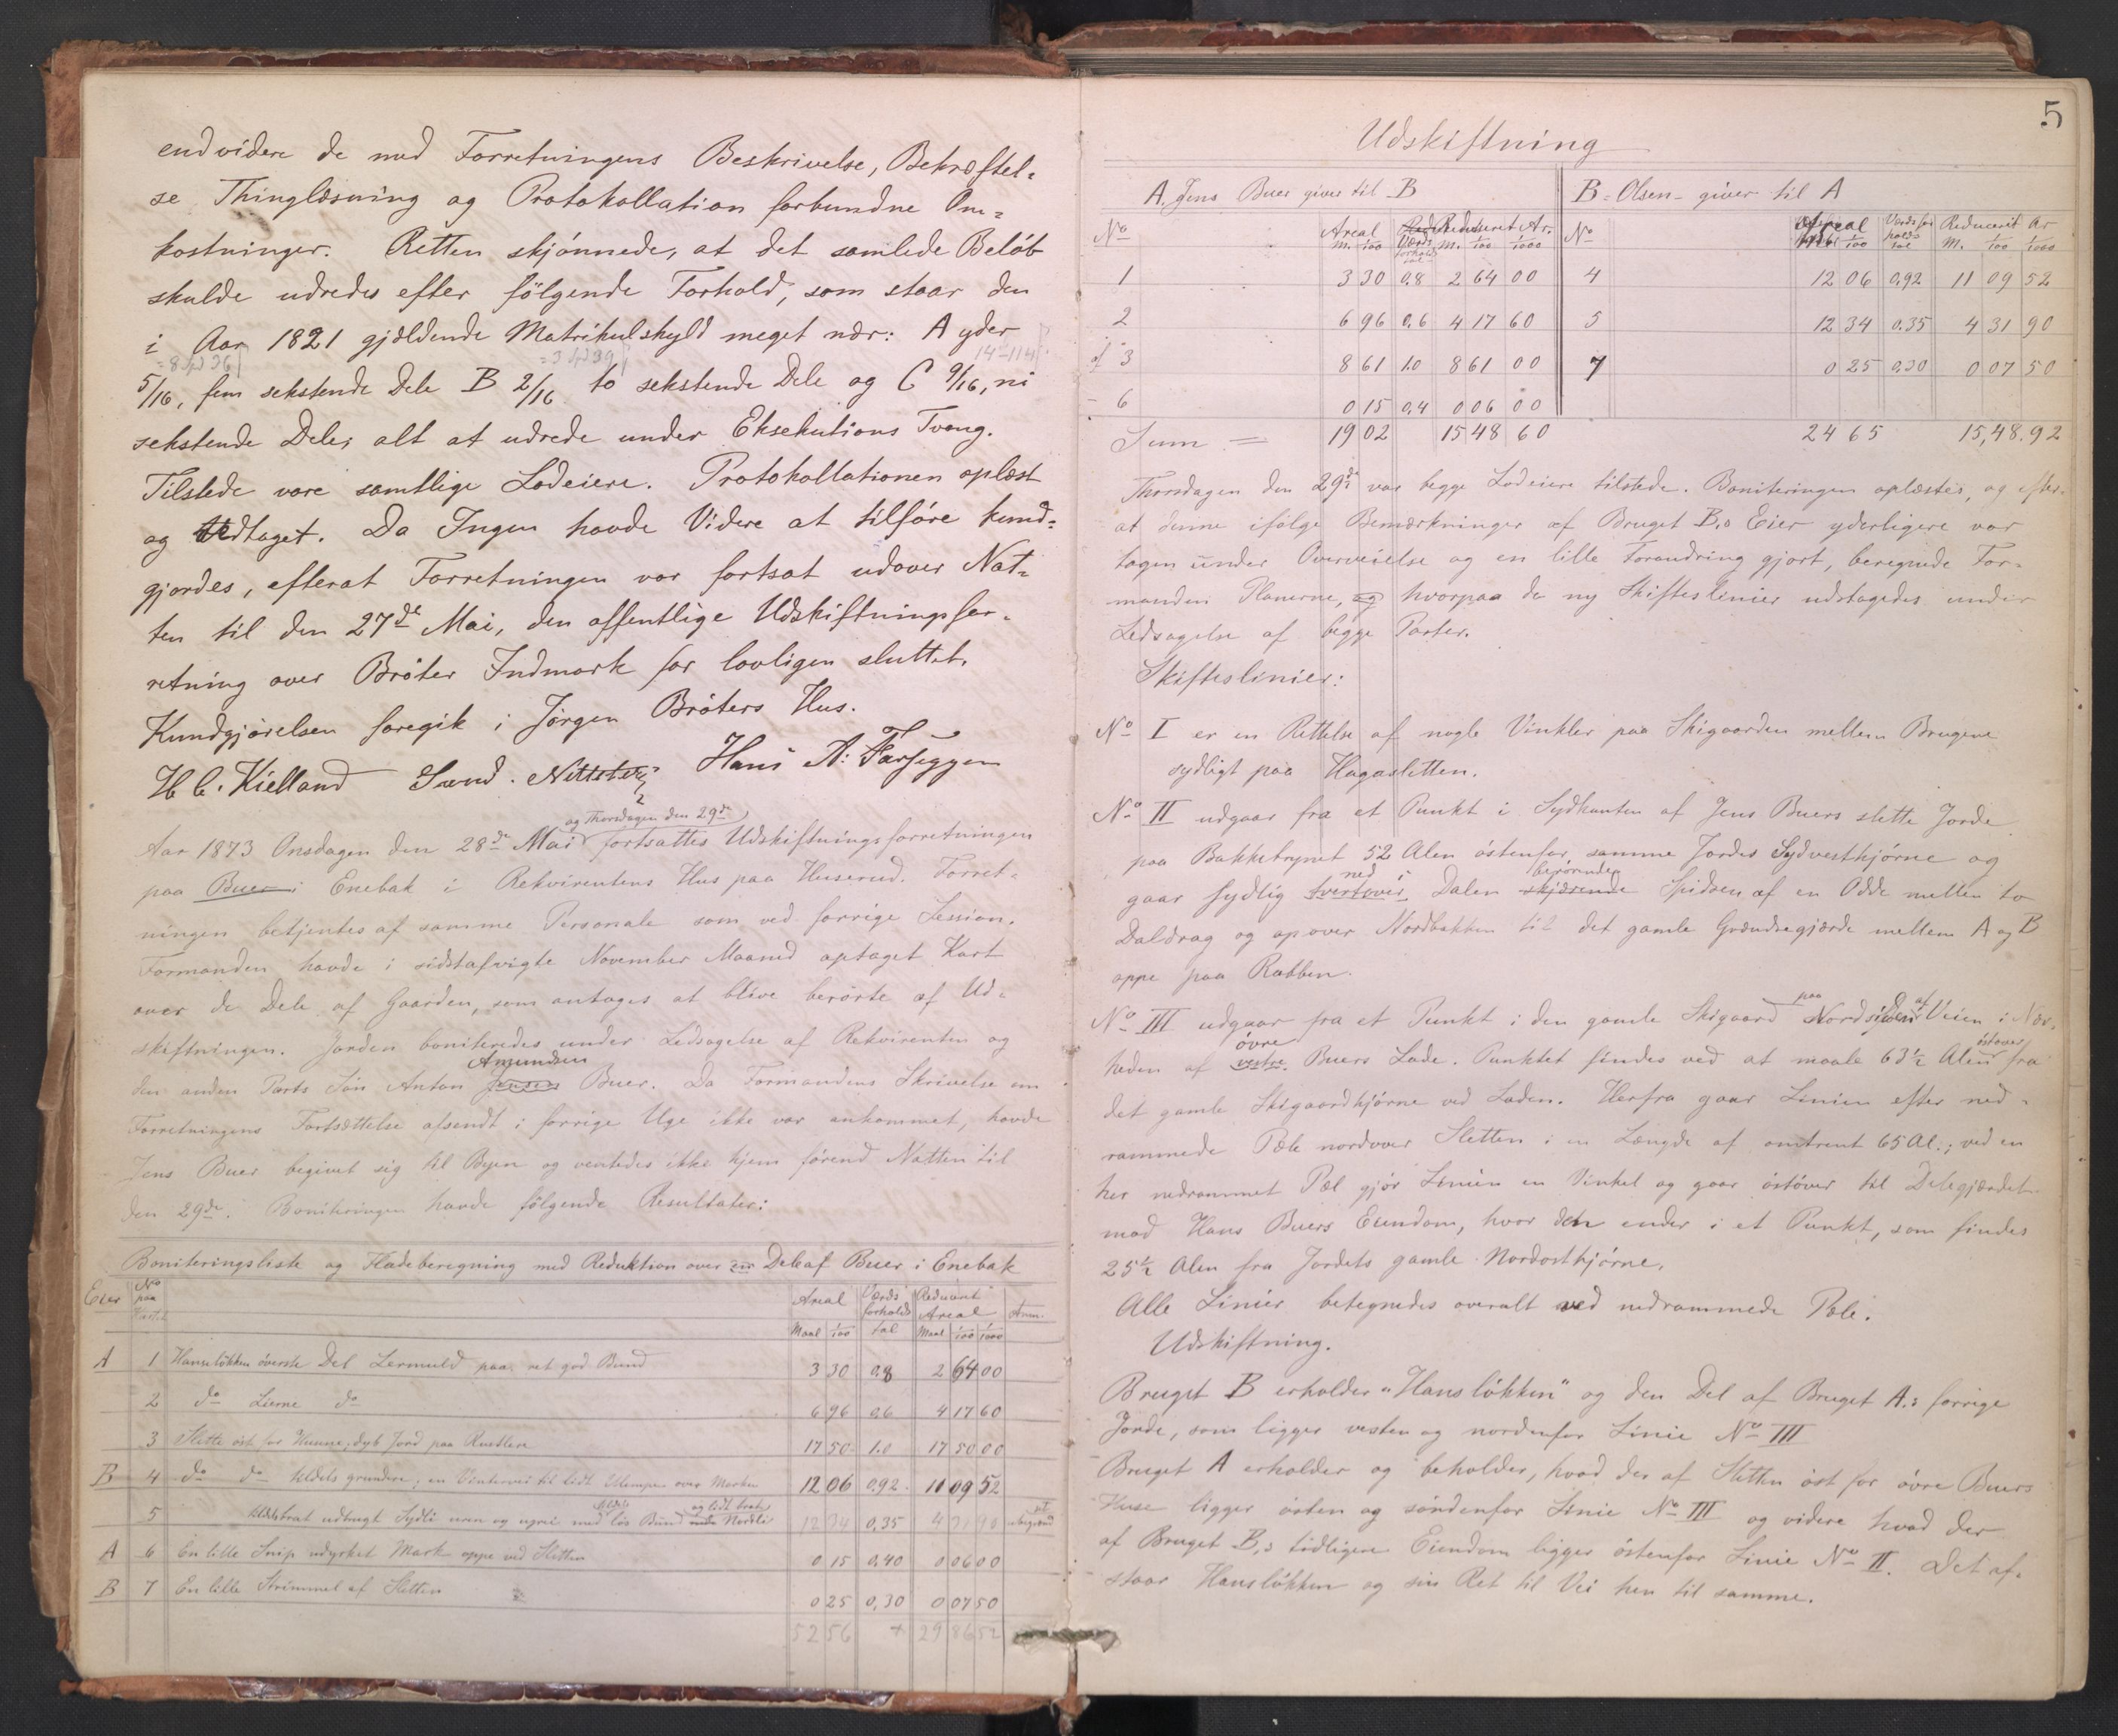 endvidere de med Forretningens Beskrivelse, Bekræftel-
se Thinglæsning og Protokollation forbundne Om-
kostninger. Retten skjønnede, at det samlede Beløb
skulde udredes efter følgende Forhold, som staar den
i Aar 1821 gjældende Matrikulskyld meget nær: A yder
5/16, fem sekstende Dele B 2/16 to sekstende Dele og C 9/16, ni
sekstende Dele, alt at udrede under Eksekutions Tvang.
Tilstede vare samtlige Lodeiere. Protokollationen oplæst
og vedtaget. Da Ingen havde Videre at tilføre kund-
gjordes, efterat Forretningen var fortsat udover Nat-
ten til den 27de Mai, den offentlige Udskiftningsfor-
retning over Bröter Indmark for lovligen sluttet.
Kundgjørelsen foregik i Jørgen Bröters Hus.
H C. Kielland Sund. Hans A: Farseggen
og Thorsdagen den 29de
Aar 1873 Onsdagen den 28de Mai fortsattes Udskiftningsforretningen
paa Buer i Enebak i Rekvirentens Hus paa Huserud. Forret-
ningen betjentes af samme Personale som ved forrige Session.
Formanden havde i sidstafvigte November Maaned optaget Kart
over de Dele af Gaarden, som antages at blive berørte af Ud-
skiftningen. Jorden boniteredes under Ledsagelse af Rekvirenten og
Amundsen
den anden Parts Søn Anton Jensen Buer. Da Formandens Skrivelse om
Forretningens Fortsættelse afsendt i forrige Uge ikke var ankommet, havde
Jens Buer begivet sig til Byen og ventedes ikke hjem førend Natten til
den 29de. Boniteringen havde følgende Resultater:
Boniteringsliste og Fladeberegning med Reduktion over en Del af Buer i Enebak
Eier No paa Kartet Areal Værdiforholdstal Reduceret Areal Anm.
Maal 1/100 Maal 1/100 1/1000
A 1 Hansløkken øverste Del Lermuld paa ret god Bund 3 30 0.8 2 64 00
2 do Lierne do 6 96 0.6 4 17 60
3 Slette øst for Husene; dyb Jord paa 17 50 1.0 17 50 00
B 4 do do tildels grundere; en Vintervei til lidt Ulempe over Marken 12 06 0.92 11 09 52
5 12 34 0,35 4 31 90
A 6 En lille Snip udyrket Mark oppe ved Sletten 0 15 0,40 0 06 00
B 7 En lille Strimmel af Sletten 0 25 0,30 0 07 50
52 56 29 86 52
5
Udskiftning
A. Jens Buer giver til B B. Olsen giver til A
No Areal Værdiforholdstal Reduceret Ar. No Areal Værdiforholdstal Reduceret Ar
M. 1/100 M. 1/100 1/1000 1/100 M. 1/100 1/1000
1 3 30 0,8 2 64 00 4 12 06 0,92 11 09 52
2 6 96 0,6 4 17 60 5 12 34 0.35 4 31 90
af 3 8 61 1.0 8 61 00 7 0 25 0,30 0 07 50
- 6 0 15 0,4 0 06 00
Sum = 19 02 15 48 60 24 65 15,48.92
Thorsdagen den 29de var begge Lodeiere tilstede. Boniteringen oplæstes, og efter-
at denne ifølge Bemærkninger af Bruget B,s Eier yderligere var
tagen under Overveielse og en lille Forandring gjort, beregnede For-
manden Planerne, og hvorpaa de ny Skifteslinier udstagedes under
Ledsagelse af begge Parter.
Skifteslinier:
No I er en Rettelse af nogle Vinkler paa Skigaarden mellem Brugene
sydligt paa Hagasletten.
No II udgaar fra et Punkt i Sydkanten af Jens Buers slette Jorde
paa Bakkebrynet 52 Alen østenfor samme Jordes Sydvesthjørne og
ned i berørende
gaar sydlig tvertover Dalen skjærende Spidsen af en Odde mellem to
Daldrag og opover Nordbakken til det gamle Grændsegjærde mellem A og B
oppe paa Rabben.
paa af
No III udgaar fra et Punkt i den gamle Skigaard Nordsiden Veien i Nær-
øvre østover
heden af vestre Buers Lade. Punktet findes ved at maale 63 1/2 Alen fra
det gamle Skigaardhjørne ved Laden. Herfra gaar Linien efter ned-
rammede Pæle nordover Sletten i en Længde af omtrent 65 Al.; ved en
her nedrammet Pæl gjør Linien en Vinkel og gaar østover til Delegjærdet
mod Hans Buers Eiendom, hvor den ender i et Punkt, som findes
25 1/2 Alen fra Jordets gamle Nordosthjørne.
Alle Linier betegnedes overalt ved nedrammede Pæle.
Udskiftning.
Bruget B erholder "Hansløkken" og den Del af Bruget A.s forrige
Jorde, som ligger vesten og nordenfor Linie No III
Bruget A erholder og beholder, hvad der af Sletten øst for øvre Buers
Huse ligger østen og søndenfor Linie No III og videre hvad der
af Bruget B,s tidligere Eiendom ligger østenfor Linie No II. Det af-
staar Hansløkken og sin Ret til Vei hen til samme.